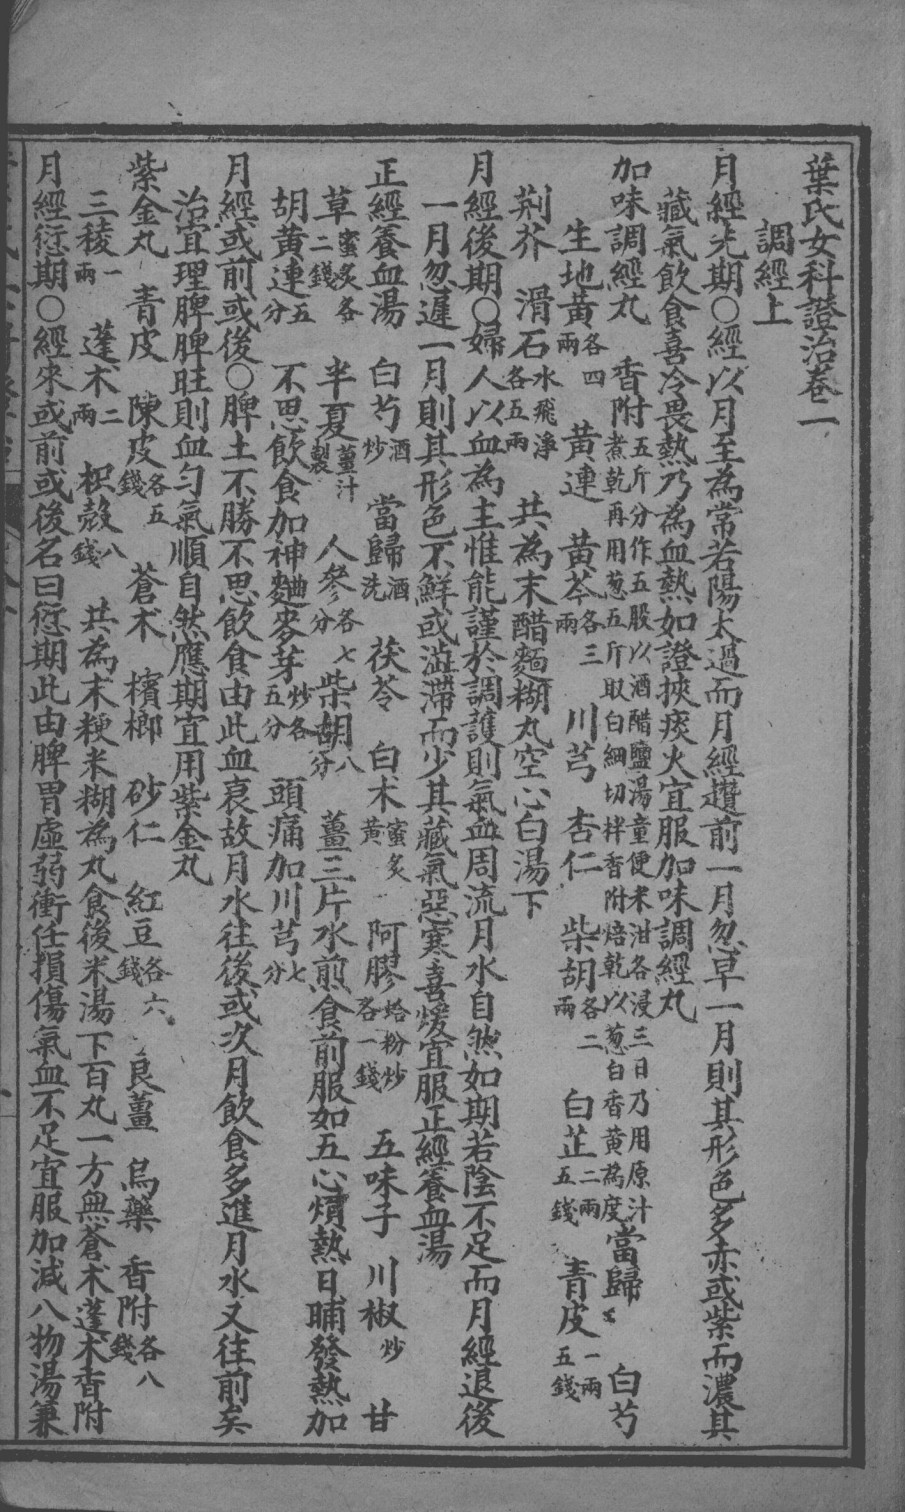 葉氏女科證治卷一
調經上
月經先期○經以月至為常若陽太過而月經趲前一月忽早一月則其形色多赤或紫而濃其
藏氣飲食喜冷畏熱乃為血熱如證挾痰火宜服加味調經丸
加味調經丸 香附五斤分作五股以酒醋鹽湯童便米泔各浸三日乃用原汁煮乾再用葱五斤取白細切拌香附焙乾以葱白香黃為度當歸 白芍
生地黃各四兩 黃連 黃芩各三兩 川芎 杏仁 柴胡各二兩 白芷二兩五錢 青皮一兩五錢
荆芥 滑石水飛淨各五兩 共為末醋麵糊丸空心白湯下
月經後期○婦人以血為主惟能謹於調護則氣血周流月水自然如期若陰不足而月經退後
一月忽遲一月則其形色不鮮或澁滯而少其藏氣惡寒喜煖宜服正經養血湯
正經養血湯 白芍酒炒 當歸酒洗 茯苓 白朮蜜炙黃 阿膠蛤粉炒各一錢 五味子 川椒炒 甘
草蜜炙各二錢 半夏薑汁製 人參各七分 柴胡八分 薑三片水煎食前服如五心煩熱日晡發熱加
胡黃連五分 不思飲食加神麯麥芽炒各五分 頭痛加川芎七分
月經或前或後○脾土不勝不思飲食由此血衰故月水往後或次月飲食多進月水又往前矣
治宜理脾脾旺則血勻氣順自然應期宜用紫金丸
紫金丸 青皮 陳皮各五錢 蒼朮 檳榔 砂仁 紅豆各六錢 良薑 烏藥 香附各八錢
三稜一兩 蓬朮二兩 枳殼八錢 共為末粳米糊為丸食後米湯下百丸一方無蒼朮蓬朮香附
月經衍期○經來或前或後名曰衍期此由脾胃虛弱衝任損傷氣血不足宜服加減八物湯兼